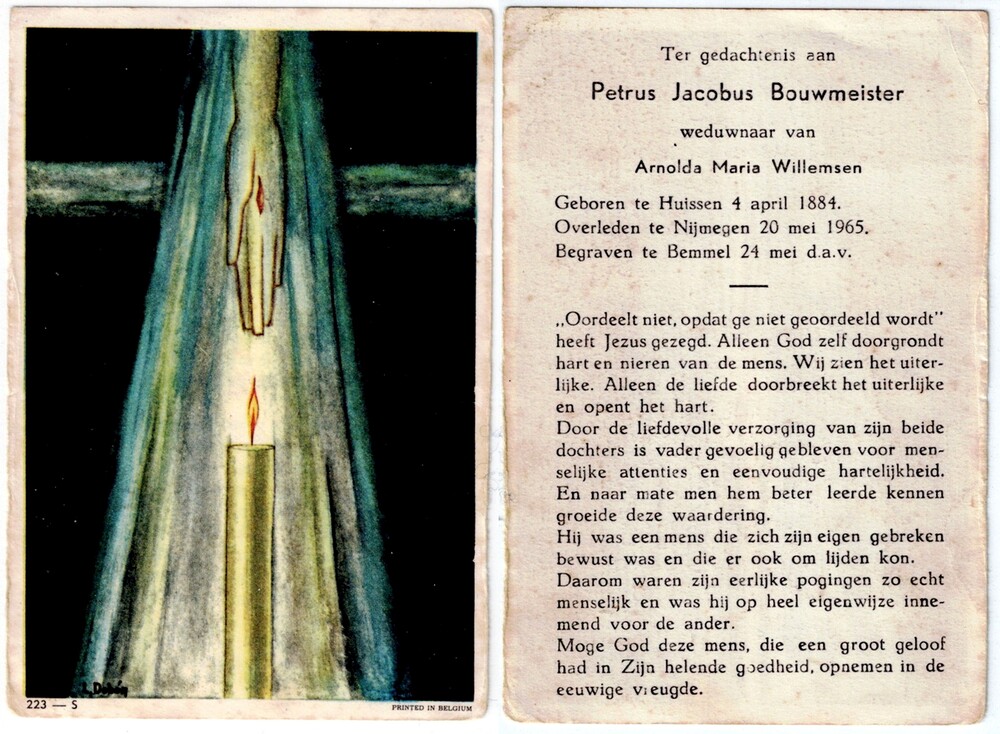 223 — S
PRINTED IN BELGIUM
Ter gedachtenis aan
Petrus Jacobus Bouwmeister
weduwnaar van
Arnolda Maria Willemsen
Geboren te Huissen 4 april 1884.
Overleden te Nijmegen 20 mei 1965.
Begraven te Bemmel 24 mei d.a.v.
„Oordeelt niet, opdat ge niet geoordeeld wordt”
heeft Jezus gezegd. Alleen God zelf doorgrondt
hart en nieren van de mens. Wij zien het uiter-
lijke. Alleen de liefde doorbreekt het uiterlijke
en opent het hart.
Door de liefdevolle verzorging van zijn beide
dochters is vader gevoelig gebleven voor men-
selijke attenties en eenvoudige hartelijkheid.
En naar mate men hem beter leerde kennen
groeide deze waardering.
Hij was een mens die zich zijn eigen gebreken
bewust was en die er ook om lijden kon.
Daarom waren zijn eerlijke pogingen zo echt
menselijk en was hij op heel eigenwijze inne-
mend voor de ander.
Moge God deze mens, die een groot geloof
had in Zijn helende goedheid, opnemen in de
eeuwige vreugde.